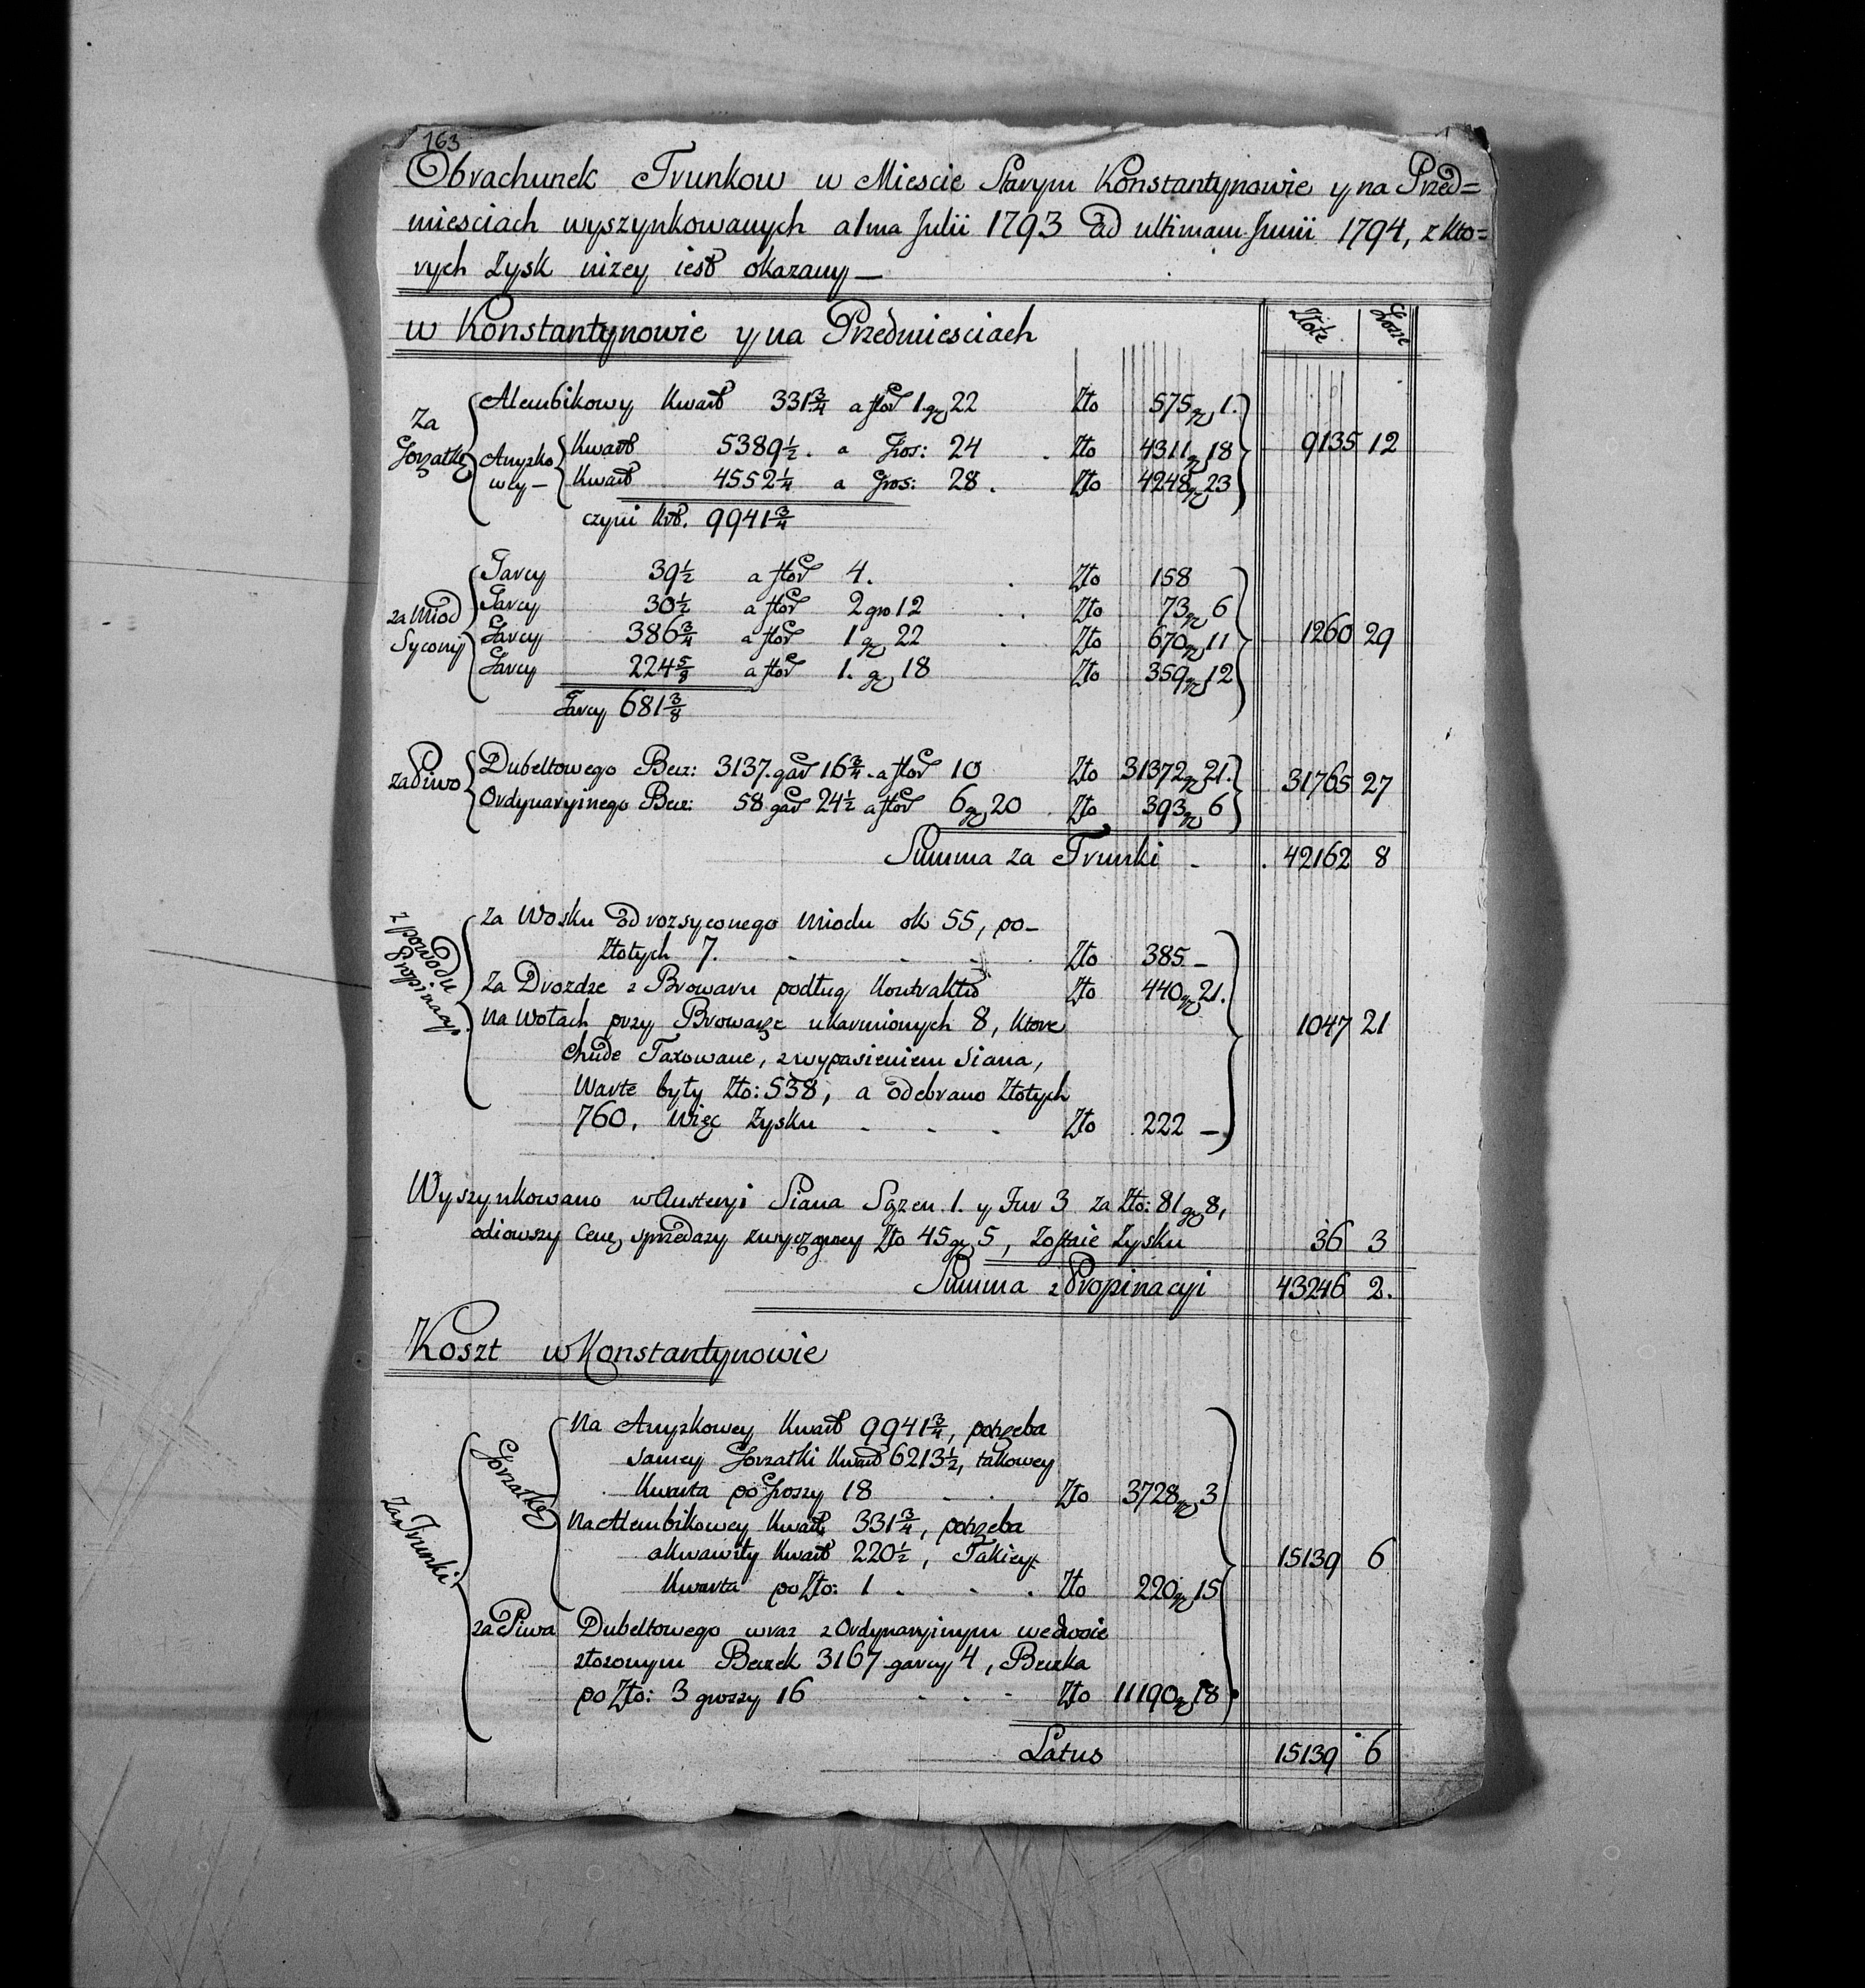 163
Obrachunek Trunkow w Miescie Starym Konstantynowie y na Przed=
miesciach wyszynkowanych a 1ma Julii 1793 ad ultimam Junii 1794, z kto=
rych Zysk nizey iest okazany —
w Konstantynowie y na Przedmiesciach Złote Grosze
Za Gorzałkę
Alembikowy Kwart 331¾ a flor 1. gr 22 Zło 575 gr 1.
Anyzko wey — Kwart 5389½ . a Gros: 24 . Zło 4311 gr 18 9135 12
Kwart 4552¼ a Gros: 28 . Zło 4248 gr 23
czyni Krt. 9941¾
za Miod Sycony
Garcy 39½ a flor 4. . Zło 158
Garcy 30½ a flor 2 gro 12 . . Zło 73 gr 6
Garcy 386¾ a flor 1 gr 22 . Zło 670 gr 11 1260 29
Garcy 224⅝ a flor 1. gr 18 Zło 359 gr 12
Garcy 681⅜
za Piwo
Dubeltowego Becz: 3137. gar 16¾ . a flor 10 Zło 31372 gr 21. 31765 27
Ordynaryinego Becz: 58 gar 24½ a flor 6 gr 20 . Zło 393 gr 6
Summa za Trunki - . 42162 8
z powodu Propinacyi
Za Wosku od rozsyconego Miodu ok 55, po-
Złotych 7. - - - . Zło 385 —
Za Drozdze z Browaru podług Kontraktu Zło 440 gr 21.
Na Wołach przy Browarze ukarmionych 8, ktore 1047 21
chude Taxowane, z wypasieniem Siana,
Warte były Zło: 538, a odebrano Złotych
760. Więc Zysku - - - Zło . 222 —
Wyszynkowano w Austeryi Siana Sązen 1. y Fur 3 za Zło: 81 gr 8,
odiowszy Cenę sprzedazy zwyczayney Zło 45 gr 5, Zostaie Zysku 36 3
Summa z Propinacyi 43246 2.
Koszt w Konstantynowie
Za Trunki
Gorzałkę
Na Anyzkowey Kwart 9941¾, potrzeba
samey Gorzałki Kwart 6213½, takowey
Kwarta po Groszy 18 . . Zło 3728 gr 3
Na Alembikowey Kwart 331¾, potrzeba
akwawity Kwart 220½, Takiey 15139 6
Kwarta po Zło: 1 . - . Zło 220 gr 15
za Piwa Dubeltowego wraz z Ordynaryinym we dwoie
złozonym Beczek 3167 garcy 4, Beczka
po Zło: 3 groszy 16 . - - Zło 11190 gr 18
Latus 15139 6